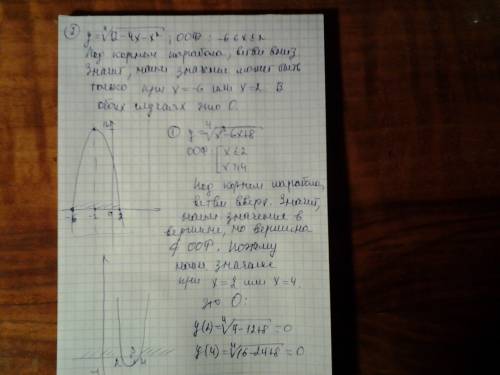 ② y=⁴√12-4x-x² ; ООФ: -6≤x≤2
Под корнем парабола, ветви вниз.
Значит, наим значение может быть
только при x=-6 или x=2. В
обоих случаях это 0.
① y=⁴√x²-6x+8
ООФ [x≤2
x≥4
Под корнем парабола,
ветви вверх. Значит,
наим значение в
вершине, но вершина
∉ ООФ. Поэтому
наим значение
при x=2 или x=4.
это 0:
y(2)=⁴√4-12+8=0
y(4)=⁴√16-24+8=0
-6 -2 0 2
2 3 4